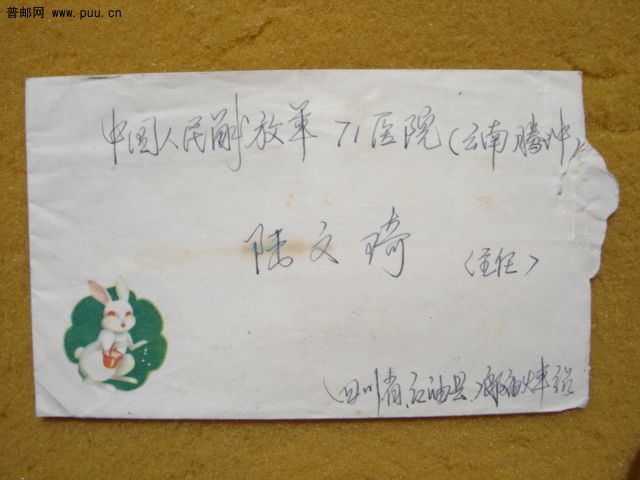 普邮网 www.puu.cn
中国人民解放军71医院(云南腾冲)
陆文琦 (主任)
四川省江油县